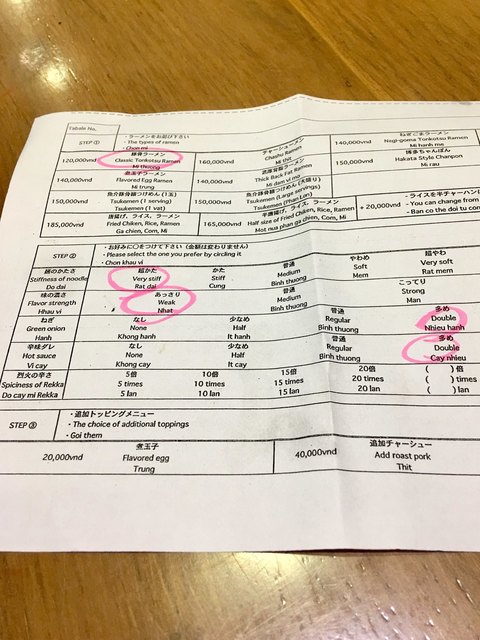 Tabale No.
STEP ①
・ラーメンをお選び下さい
・The types of ramen
・Chon mi
120,000vnd
豚骨ラーメン
Classic Tonkotsu Ramen
Mi thuong
160,000vnd
チャーシューメン
Chashu Ramen
Mi thit
140,000vnd
ねぎごまラーメン
Negi-goma Tonkotsu Ramen
Mi hanh me
140,000vnd
煮玉子ラーメン
Flavored Egg Ramen
Mi trung
150,000vnd
武原背脂ラーメン
Thick Back Fat Ramen
Mi dam vi mo
150,000vnd
博多ちゃんぽん
Hakata Style Chanpon
Mi rau
150,000vnd
魚介豚骨つけめん (1玉)
Tsukemen (1 serving)
Tsukemen (1 vat)
魚介豚骨つけめん (大盛り)
Tsukemen (Large servings)
Tsukemen (Phan Lon)
+ 20,000vnd
・ライスを半チャーハンに
・You can change from
・Ban co the doi tu com
185,000vnd
唐揚げ, ライス, ラーメン
Fried Chiken, Rice, Ramen
Ga chien, Com, Mi
165,000vnd
半唐揚げ, ライス, ラーメン
Half size of Fried Chiken, Rice, Ramen
Mot nua phan ga chien, Com, Mi
STEP ②
・お好みに○をつけて下さい (金額は変わりません)
・Please select the one you prefer by circling it
・Chon khau vi
麺のかたさ
Stiffness of noodle
Do dai
超かた
Very stiff
Rat dai
かた
Stiff
Cung
普通
Medium
Binh thuong
やわめ
Soft
Mem
超やわ
Very soft
Rat mem
味の濃さ
Flavor strength
Hhau vi
あっさり
Weak
Nhat
普通
Medium
Binh thuong
こってり
Strong
Man
ねぎ
Green onion
Hanh
なし
None
Khong hanh
少なめ
Half
It hanh
普通
Regular
Binh thuong
多め
Double
Nhieu hanh
辛味ダレ
Hot sauce
Vi cay
なし
None
Khong cay
少なめ
Half
It cay
普通
Regular
Binh thuong
多め
Double
Cay nhieu
烈火の辛さ
Spiciness of Rekka
Do cay mi Rekka
5倍
5 times
5 lan
10倍
10 times
10 lan
15倍
15 times
15 lan
20倍
20 times
20 lan
( )倍
( )times
( )lan
STEP ③
・追加トッピングメニュー
・The choice of additional toppings
・Goi them
20,000vnd
煮玉子
Flavored egg
Trung
40,000vnd
追加チャーシュー
Add roast pork
Thit